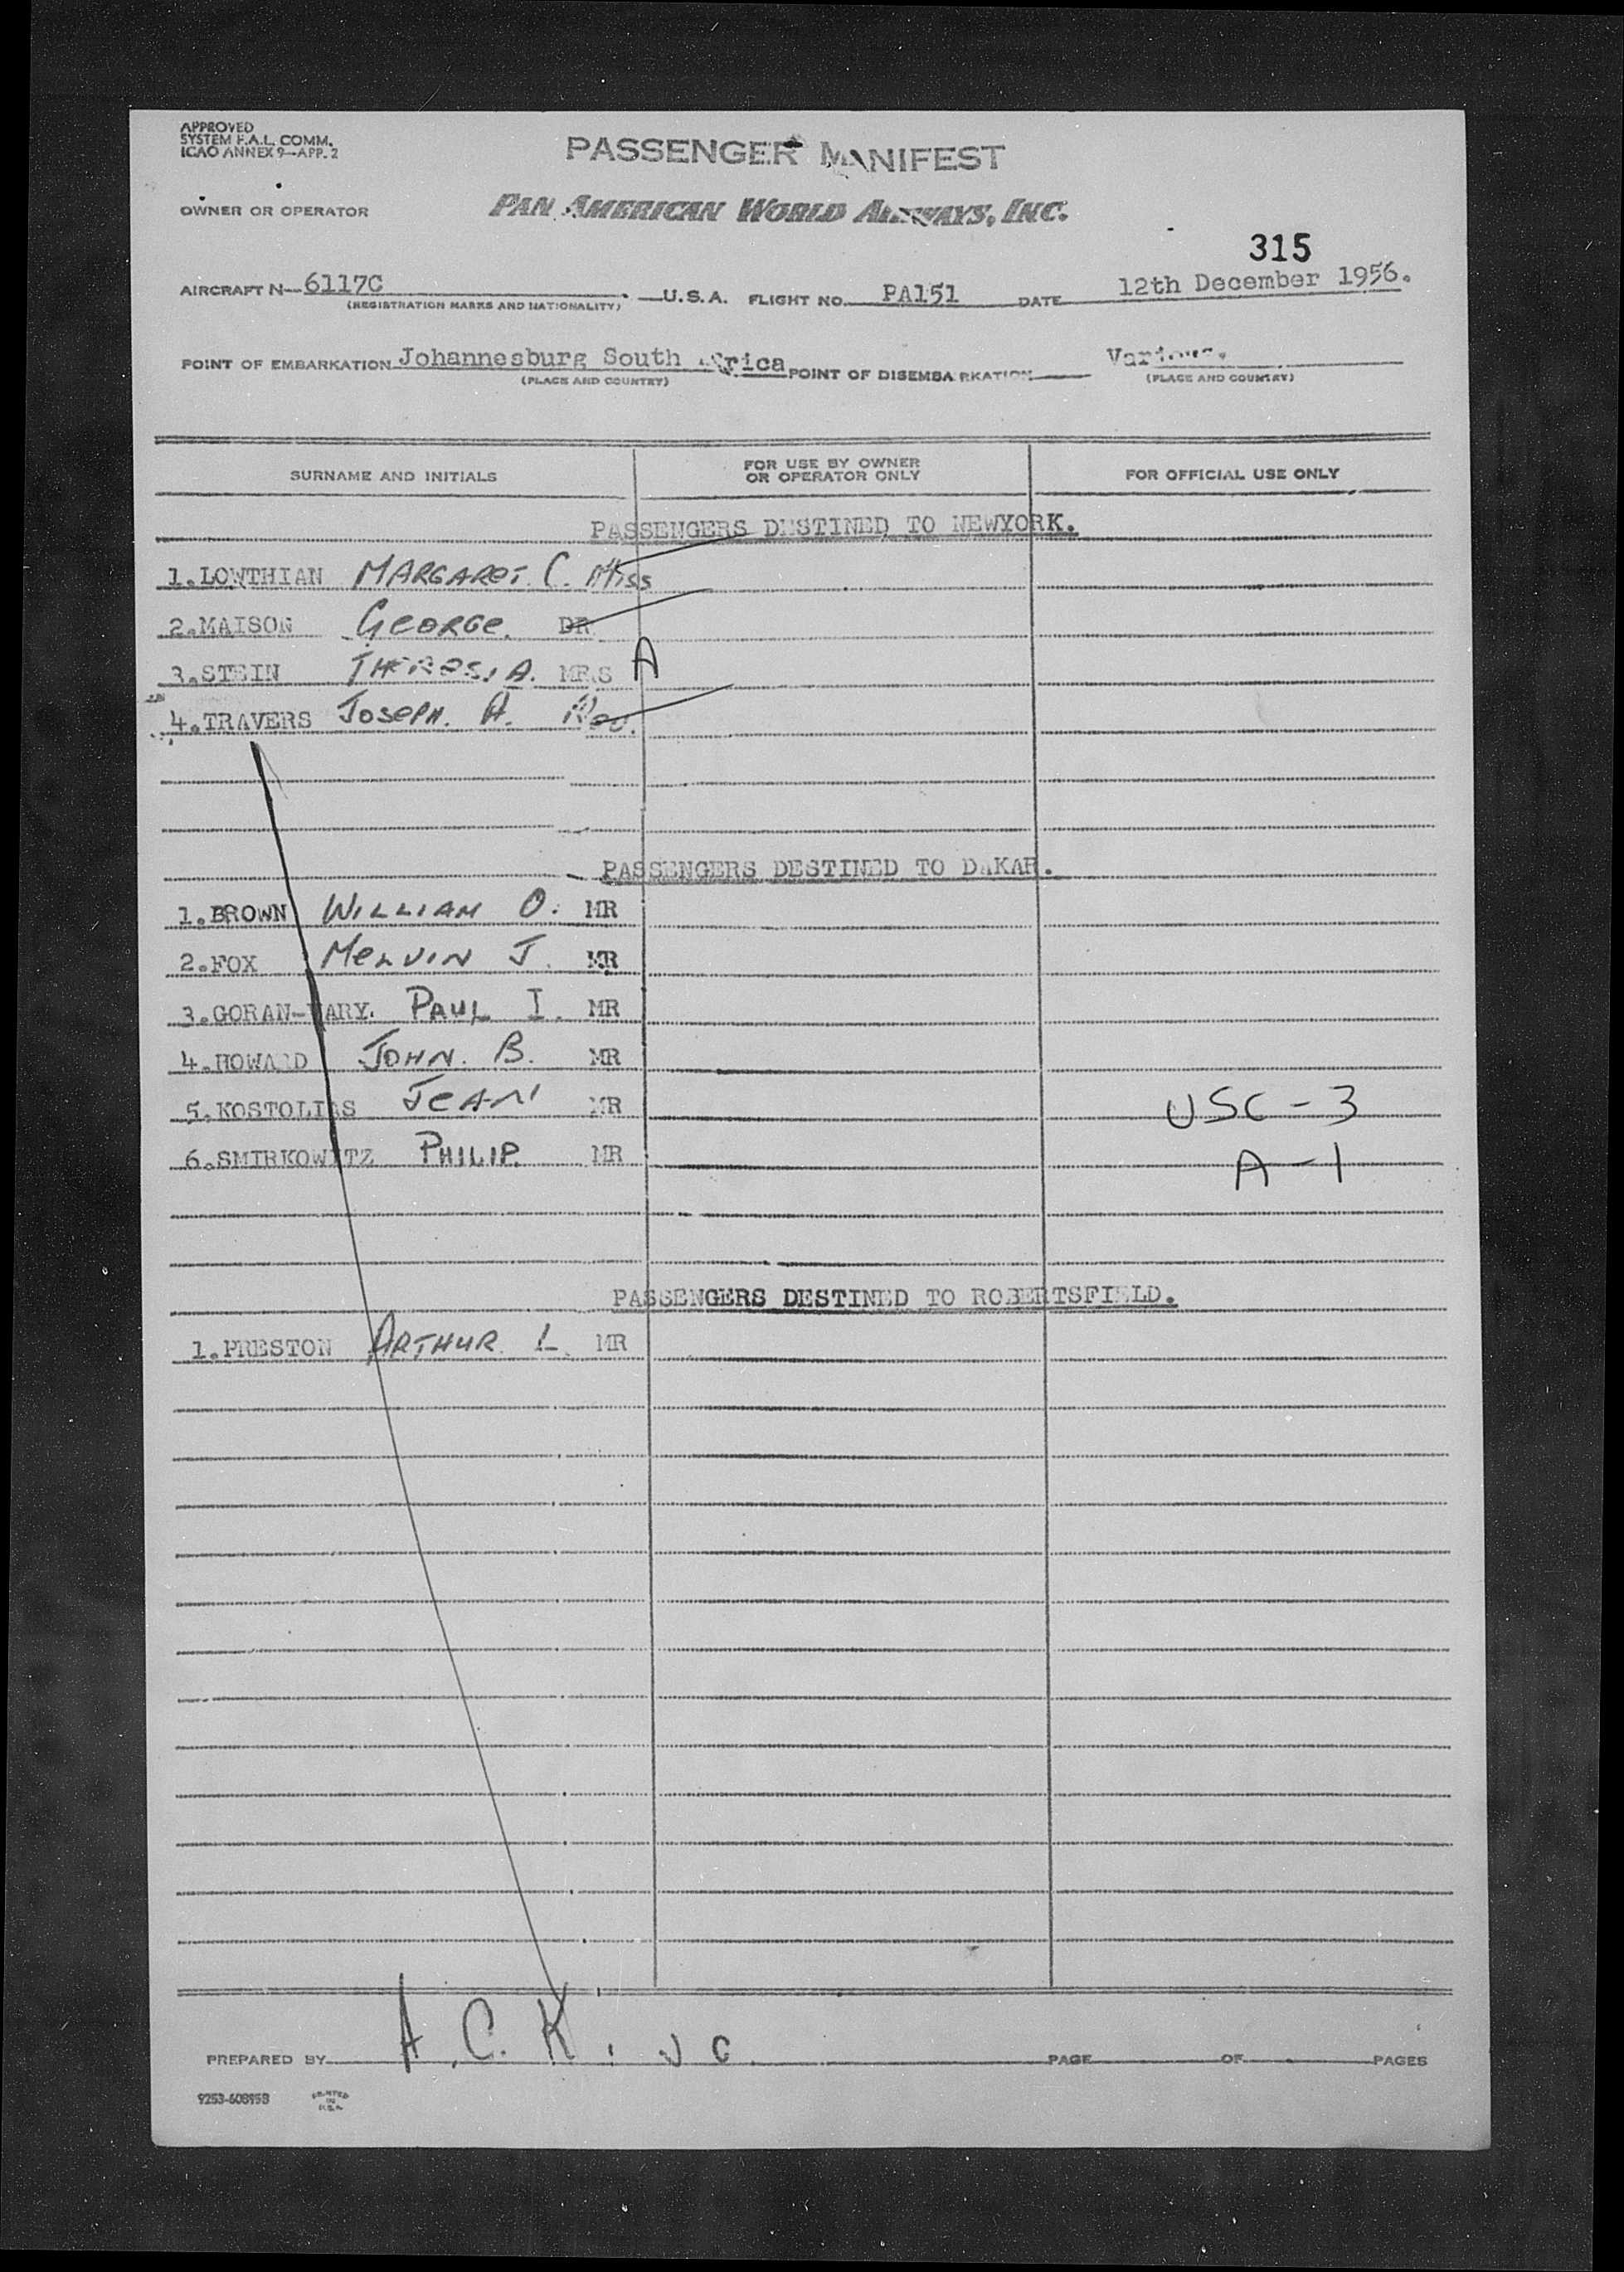 APPROVED
SYSTEM F.A.L. COMM.
ICAO ANNEX 9—APP. 2
PASSENGER MANIFEST
OWNER OR OPERATOR PAN AMERICAN WORLD AIRWAYS, INC.
315
AIRCRAFT N—6117C U.S.A. FLIGHT NO. PA151 DATE 12th December 1956.
(REGISTRATION MARKS AND NATIONALITY)
POINT OF EMBARKATION Johannesburg South Africa POINT OF DISEMBARKATION Various.
(PLACE AND COUNTRY) (PLACE AND COUNTRY)
SURNAME AND INITIALS FOR USE BY OWNER OR OPERATOR ONLY FOR OFFICIAL USE ONLY
PASSENGERS DESTINED TO NEWYORK.
1.LOWTHIAN MARGARET. C. MISS
2.MAISON GEORGE. DR
3.STEIN THERESIA. MRS A
4.TRAVERS JOSEPH. A. Rev.
PASSENGERS DESTINED TO DAKAR.
1.BROWN WILLIAM O. MR
2.FOX MELVIN J. MR
3.GORAN- PAUL I. MR
4.HOWARD JOHN. B. MR
5.KOSTOLIAS JEAN MR USC - 3
6.SMIRKOWITZ PHILIP. MR A - 1
PASSENGERS DESTINED TO ROBERTSFIELD.
1.PRESTON ARTHUR. L. MR
PREPARED BY A.C.K. PAGE OF PAGES
9253-608958 PRINTED
IN
U.S.A.